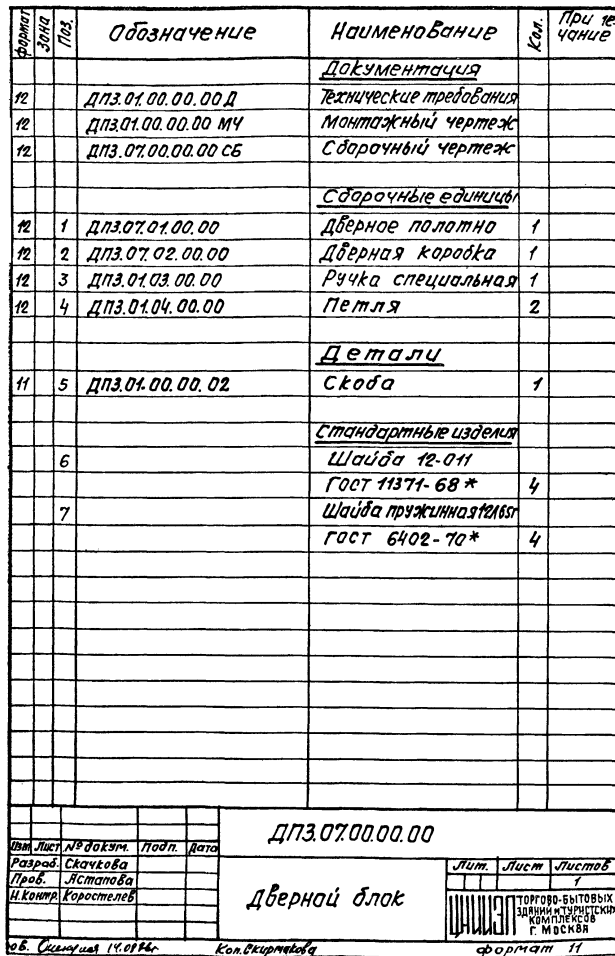 формат Зона Поз. Обозначение Наименование Кол. Приме чание
Документация
12 ДП3.01.00.00.00 Д Технические требования
12 ДП3.01.00.00.00 МЧ Монтажный чертеж
12 ДП3.07.00.00.00 СБ Сборочный чертеж
Сборочные единицы
12 1 ДП3.07.01.00.00 Дверное полотно 1
12 2 ДП3.07.02.00.00 Дверная коробка 1
12 3 ДП3.01.03.00.00 Ручка специальная 1
12 4 ДП3.01.04.00.00 Петля 2
Детали
11 5 ДП3.01.00.00.02 Скоба 1
Стандартные изделия
6 Шайба 12-011
ГОСТ 11371-68* 4
7 Шайба пружинная 12 65Г
ГОСТ 6402-70* 4
ДП3.07.00.00.00
Изм Лист № докум. Подп. Дата
Разраб. Скачкова
Пров. Астапова
Н.контр. Коростелев
Дверной блок
Лит. Лист Листов
1
ЦНИИЭП ТОРГОВО-БЫТОВЫХ
ЗДАНИЙ И ТУРИСТСКИХ
КОМПЛЕКСОВ
Г. МОСКВА
Коп. формат 11